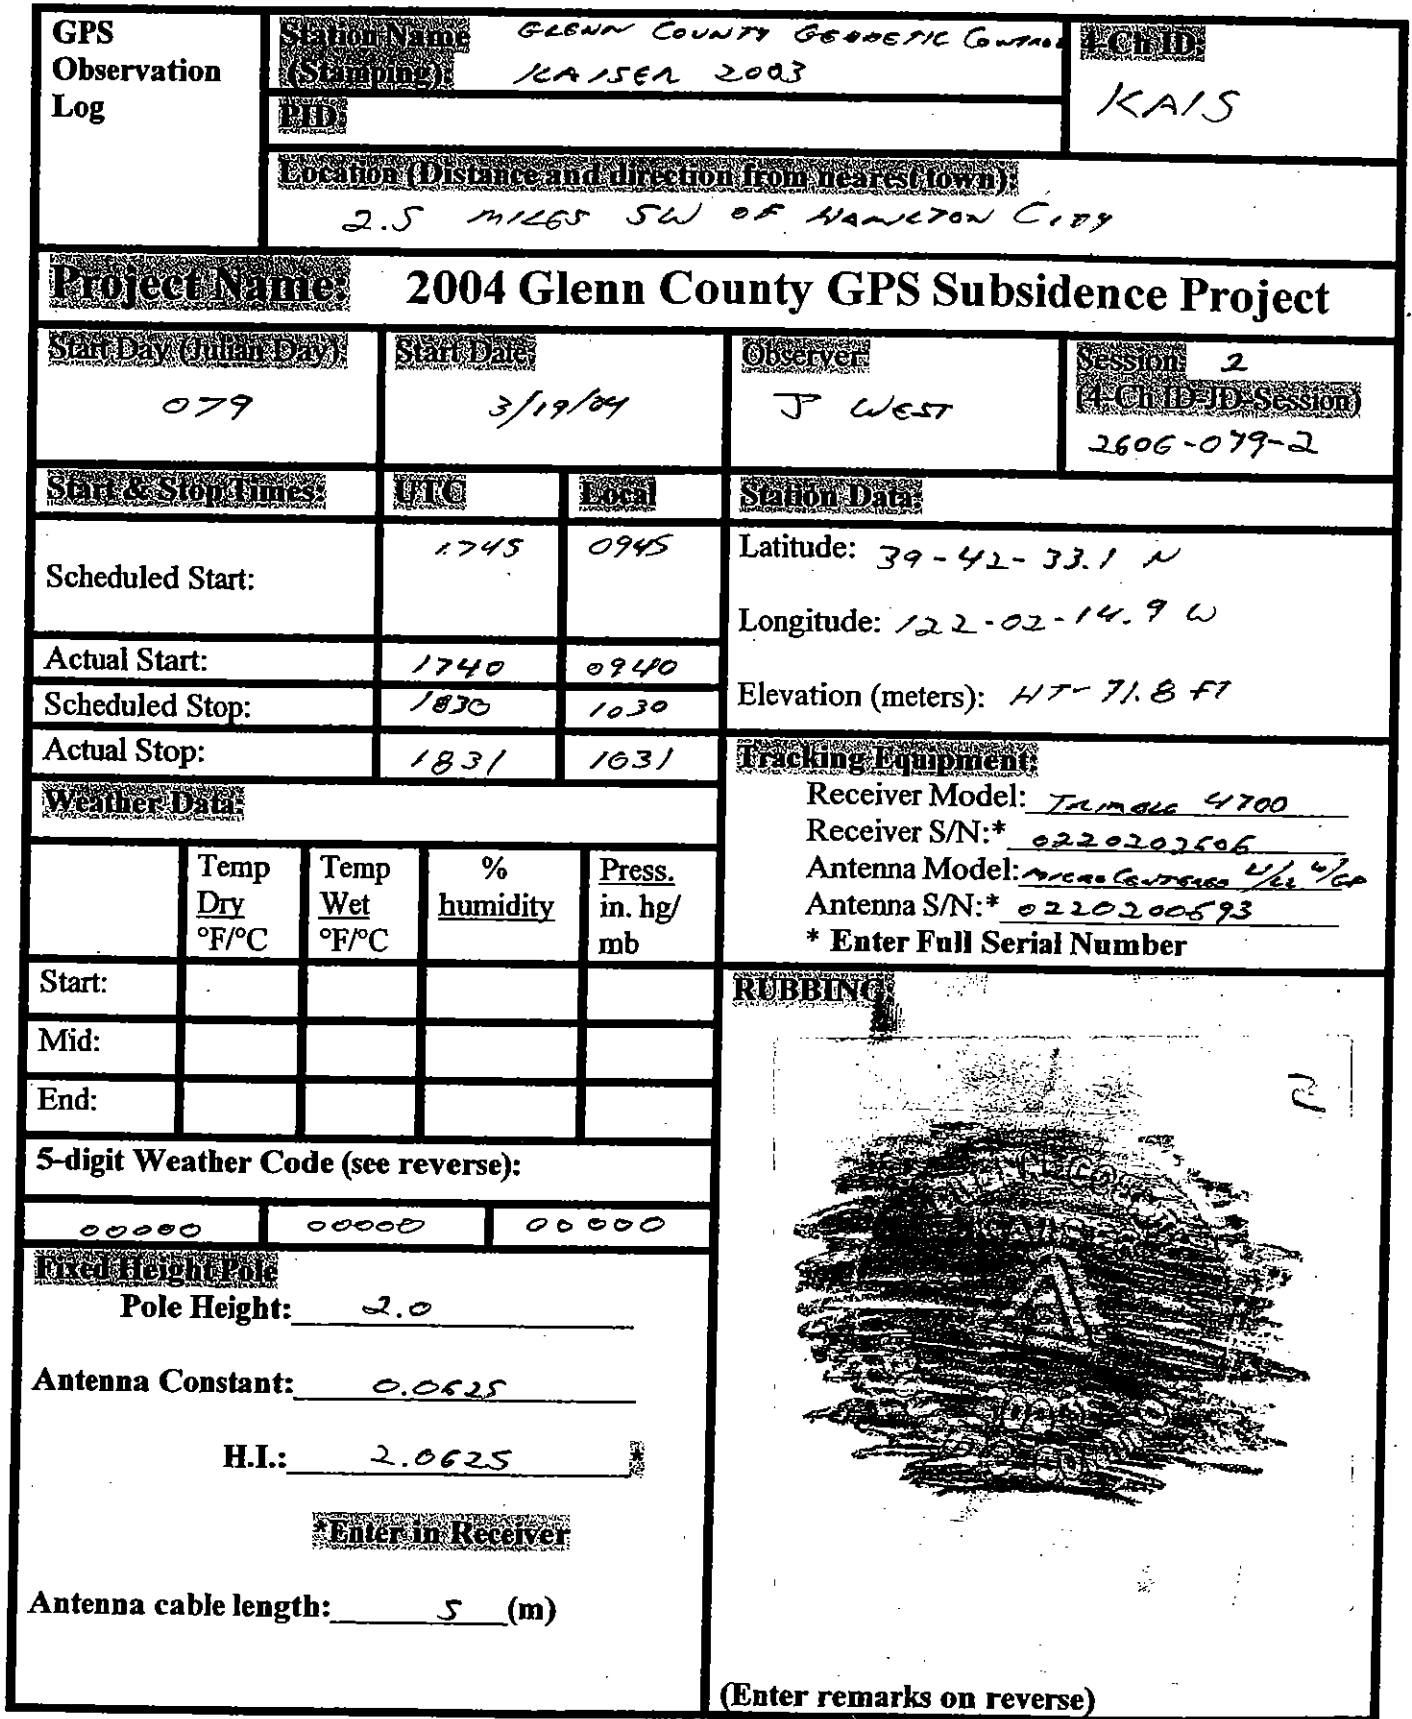 GPS
Observation
Log
Station Name GLENN COUNTY GEODETIC CONTROL
(Stamping): KAISER 2003
4-Ch ID:
KAIS
PID:
Location (Distance and direction from nearest town):
2.5 MILES SW OF HAMILTON CITY
Project Name: 2004 Glenn County GPS Subsidence Project
Start Day (Julian Day)
079
Start Date
3/19/04
Observer
J WEST
Session 2
(4-Ch ID-JD-Session)
2606-079-2
Start & Stop Times: UTC Local
Scheduled Start: 1745 0945
Actual Start: 1740 0940
Scheduled Stop: 1830 1030
Actual Stop: 1831 1031
Station Data:
Latitude: 39-42-33.1 N
Longitude: 122-02-14.9 W
Elevation (meters): HT-71.8 FT
Tracking Equipment:
Receiver Model: TRIMBLE 4700
Receiver S/N:* 0220202606
Antenna Model: MICRO CENTERED L1/L2 W/GP
Antenna S/N:* 0220200593
* Enter Full Serial Number
Weather Data:
Temp Dry °F/°C
Temp Wet °F/°C
% humidity
Press. in. hg/ mb
Start:
Mid:
End:
5-digit Weather Code (see reverse):
00000 00000 00000
Fixed Height Pole
Pole Height: 2.0
Antenna Constant: 0.0625
H.I.: 2.0625 *
*Enter in Receiver
Antenna cable length: 5 (m)
RUBBING
2
(Enter remarks on reverse)